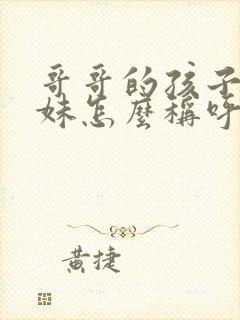 哥哥的孩子
妹怎麼稱呼
黃捷